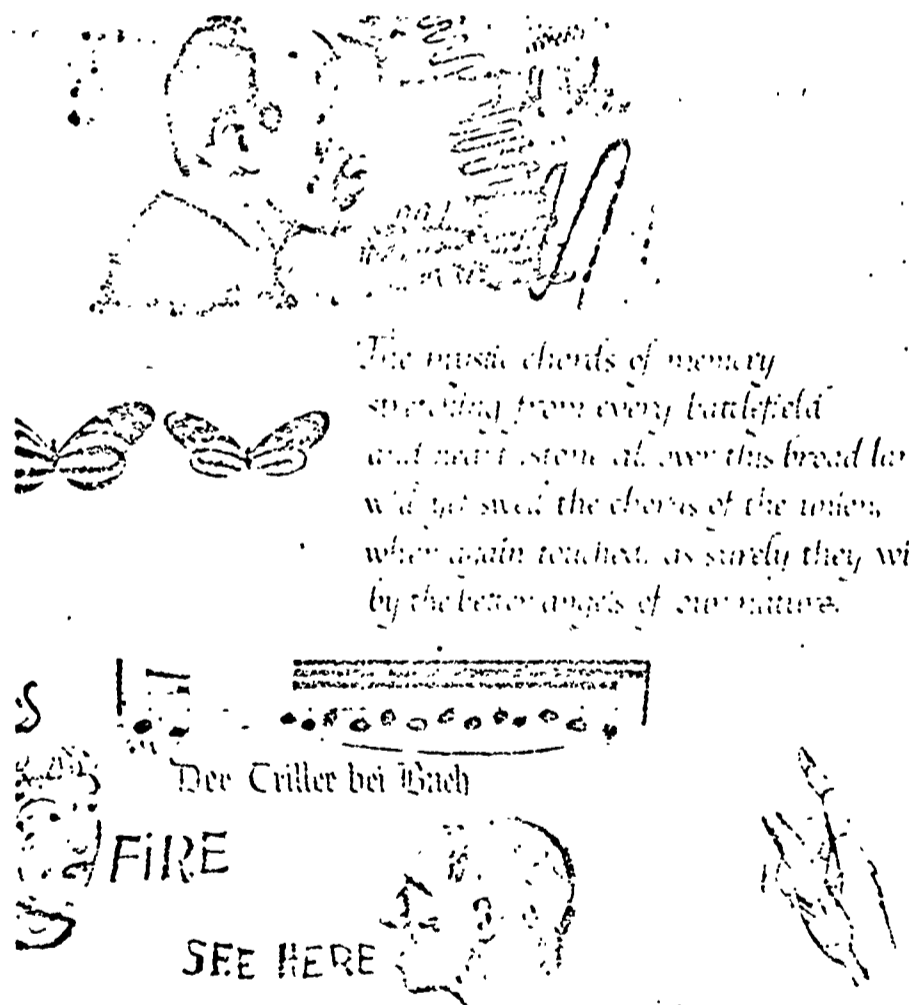 The mystic chords of memory
stretching from every battlefield
and heart stone all over this broad lan
will yet swell the chorus of the union,
when again touched, as surely they wi
by the better angels of our nature.
S
Der Triller bei Bach
FiRE
SEE HERE